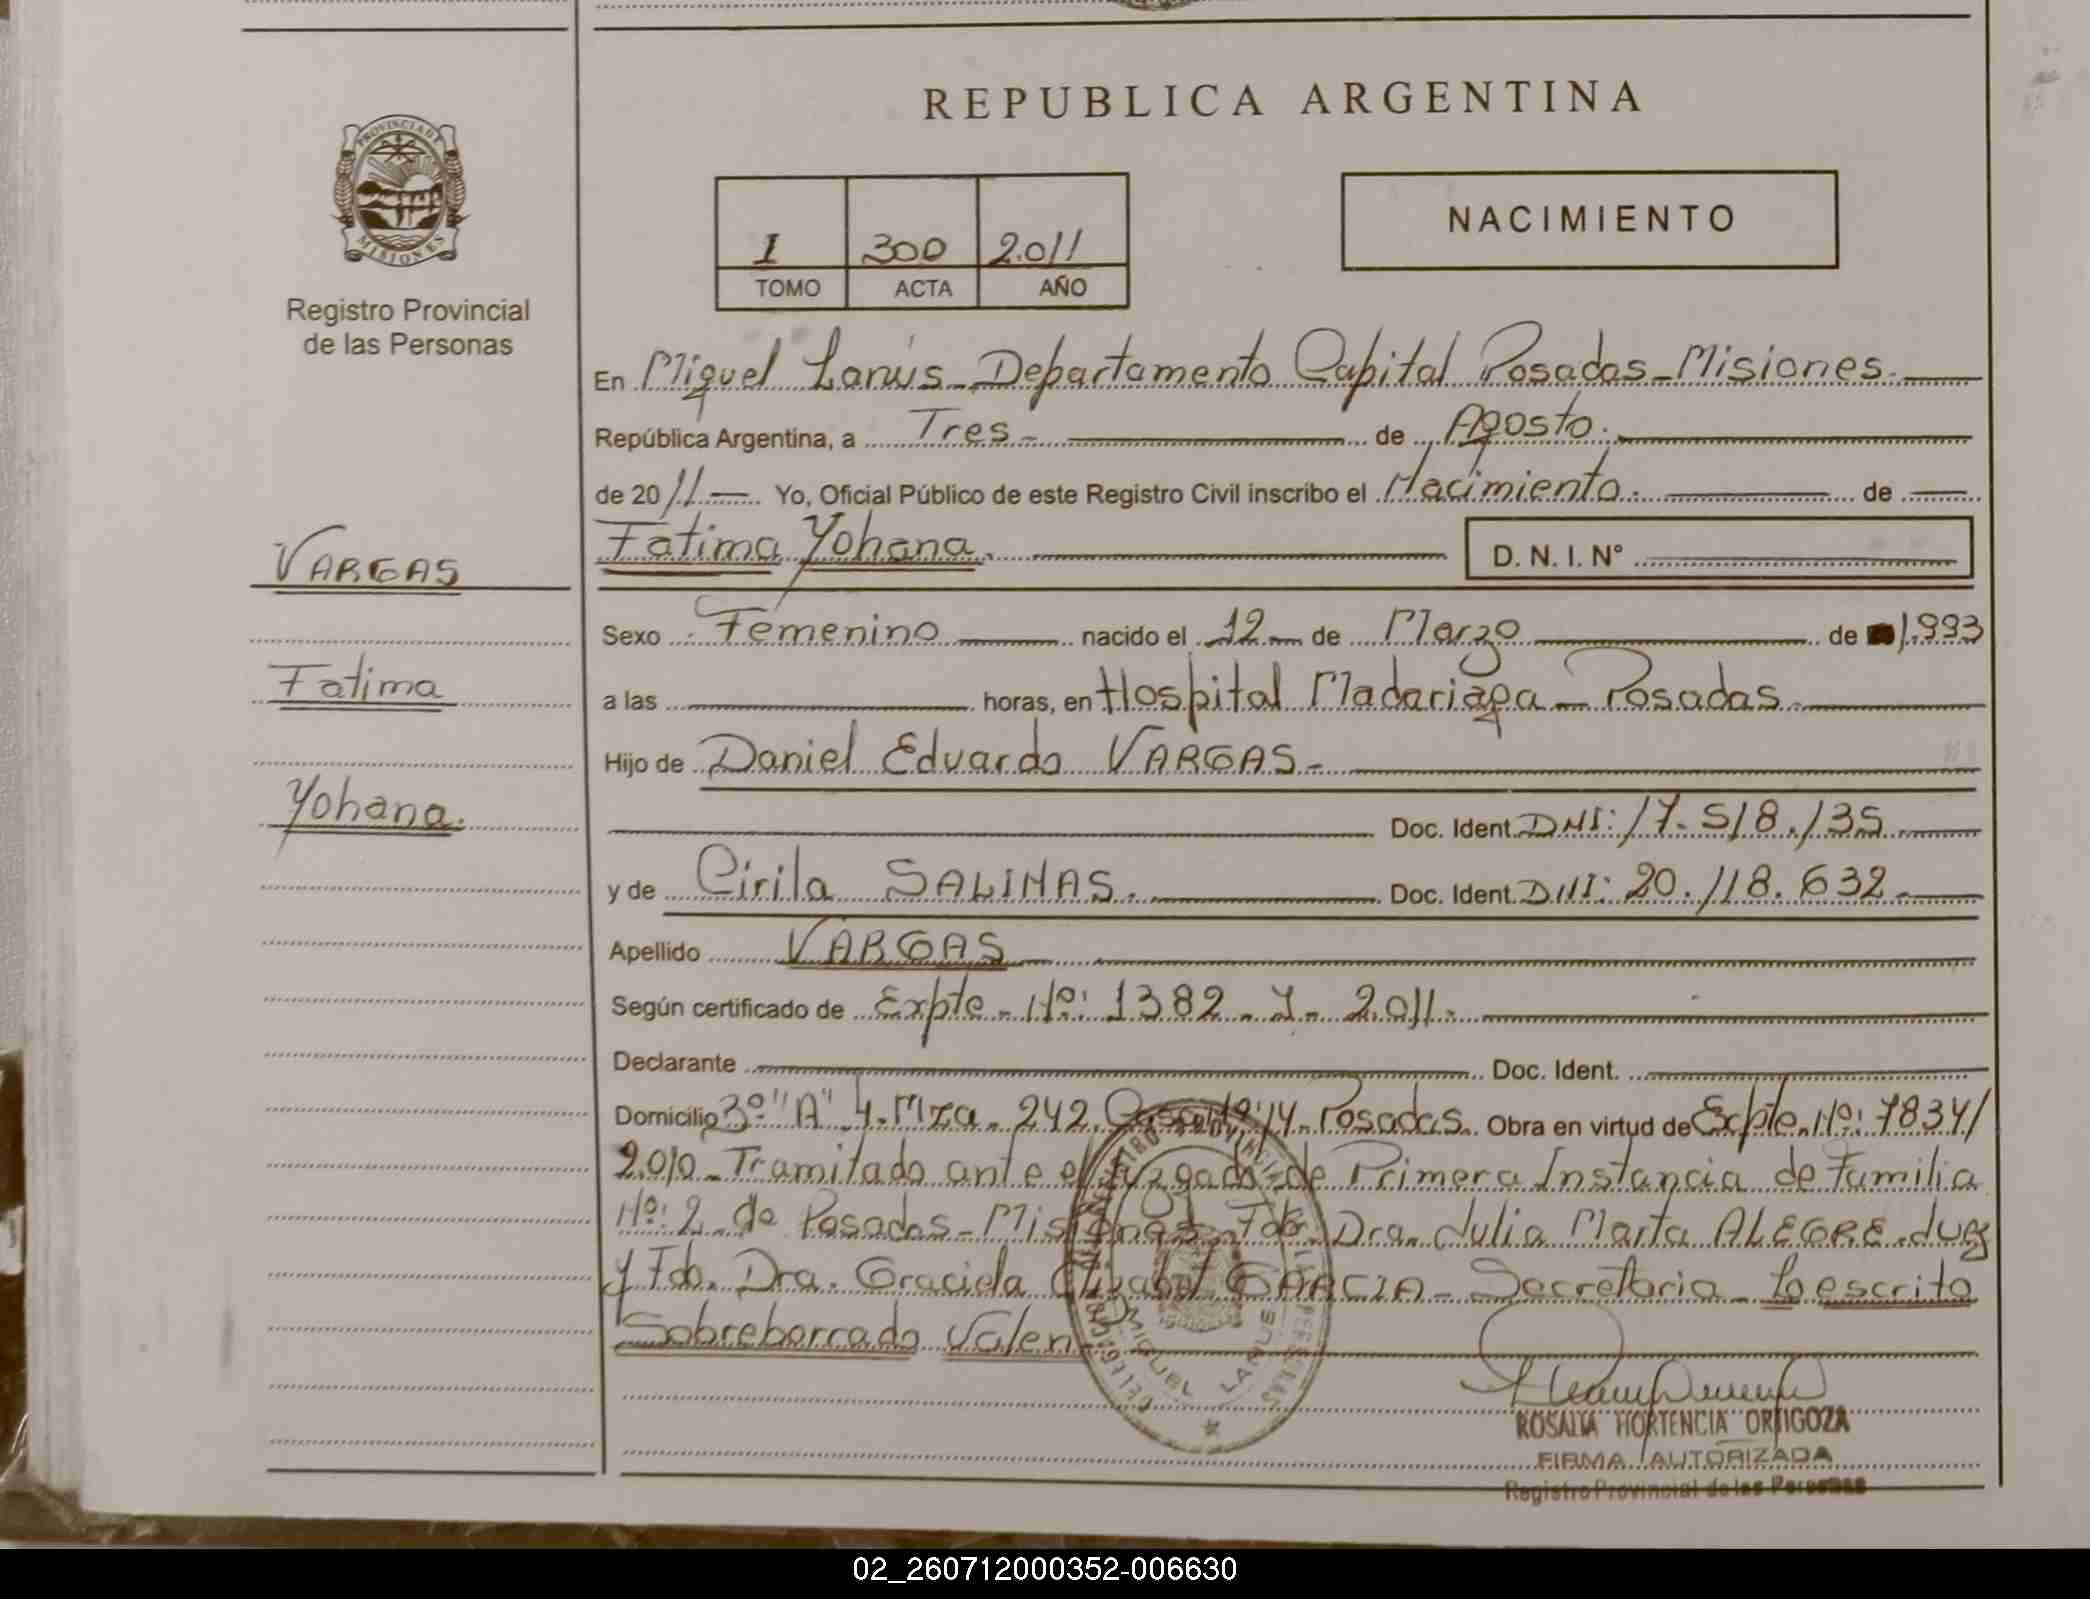 REPUBLICA ARGENTINA
PROVINCIA DE
MISIONES
Registro Provincial
de las Personas
I 300 2.011
TOMO ACTA AÑO
NACIMIENTO
En Miguel Lanús - Departamento Capital Posadas - Misiones.
República Argentina, a Tres - de Agosto.
de 2011 Yo, Oficial Público de este Registro Civil inscribo el Nacimiento. de
Fatima Yohana. D. N. I. N°
VARGAS
Fatima
Yohana.
Sexo Femenino nacido el 12 de Marzo de 1.993
a las horas, en Hospital Madariaga - Posadas.
Hijo de Daniel Eduardo VARGAS -
Doc. Ident. DNI: 17.518.135
y de Cirila SALINAS. Doc. Ident. DNI: 20.118.632 -
Apellido VARGAS
Según certificado de Expte - Nº: 1382 - Y - 2.011.
Declarante Doc. Ident.
Domicilio 3º "A" 4. Mza. 242. Casa Nº: 14 - Posadas. Obra en virtud de Expte. Nº: 7834/
2.010 - Tramitado ante el Juzgado de Primera Instancia de Familia
Nº: 2 de Posadas - Misiones - Fdo. Dra. Julia Marta ALEGRE. Juez
y Fdo. Dra. Graciela Elizabet GARCIA - Secretaria - Lo escrito
Sobreborrado Valen.
MIGUEL LANUS
ROSALIA HORTENCIA ORTIGOZA
FIRMA AUTORIZADA
Registro Provincial de las Personas
02_260712000352-006630